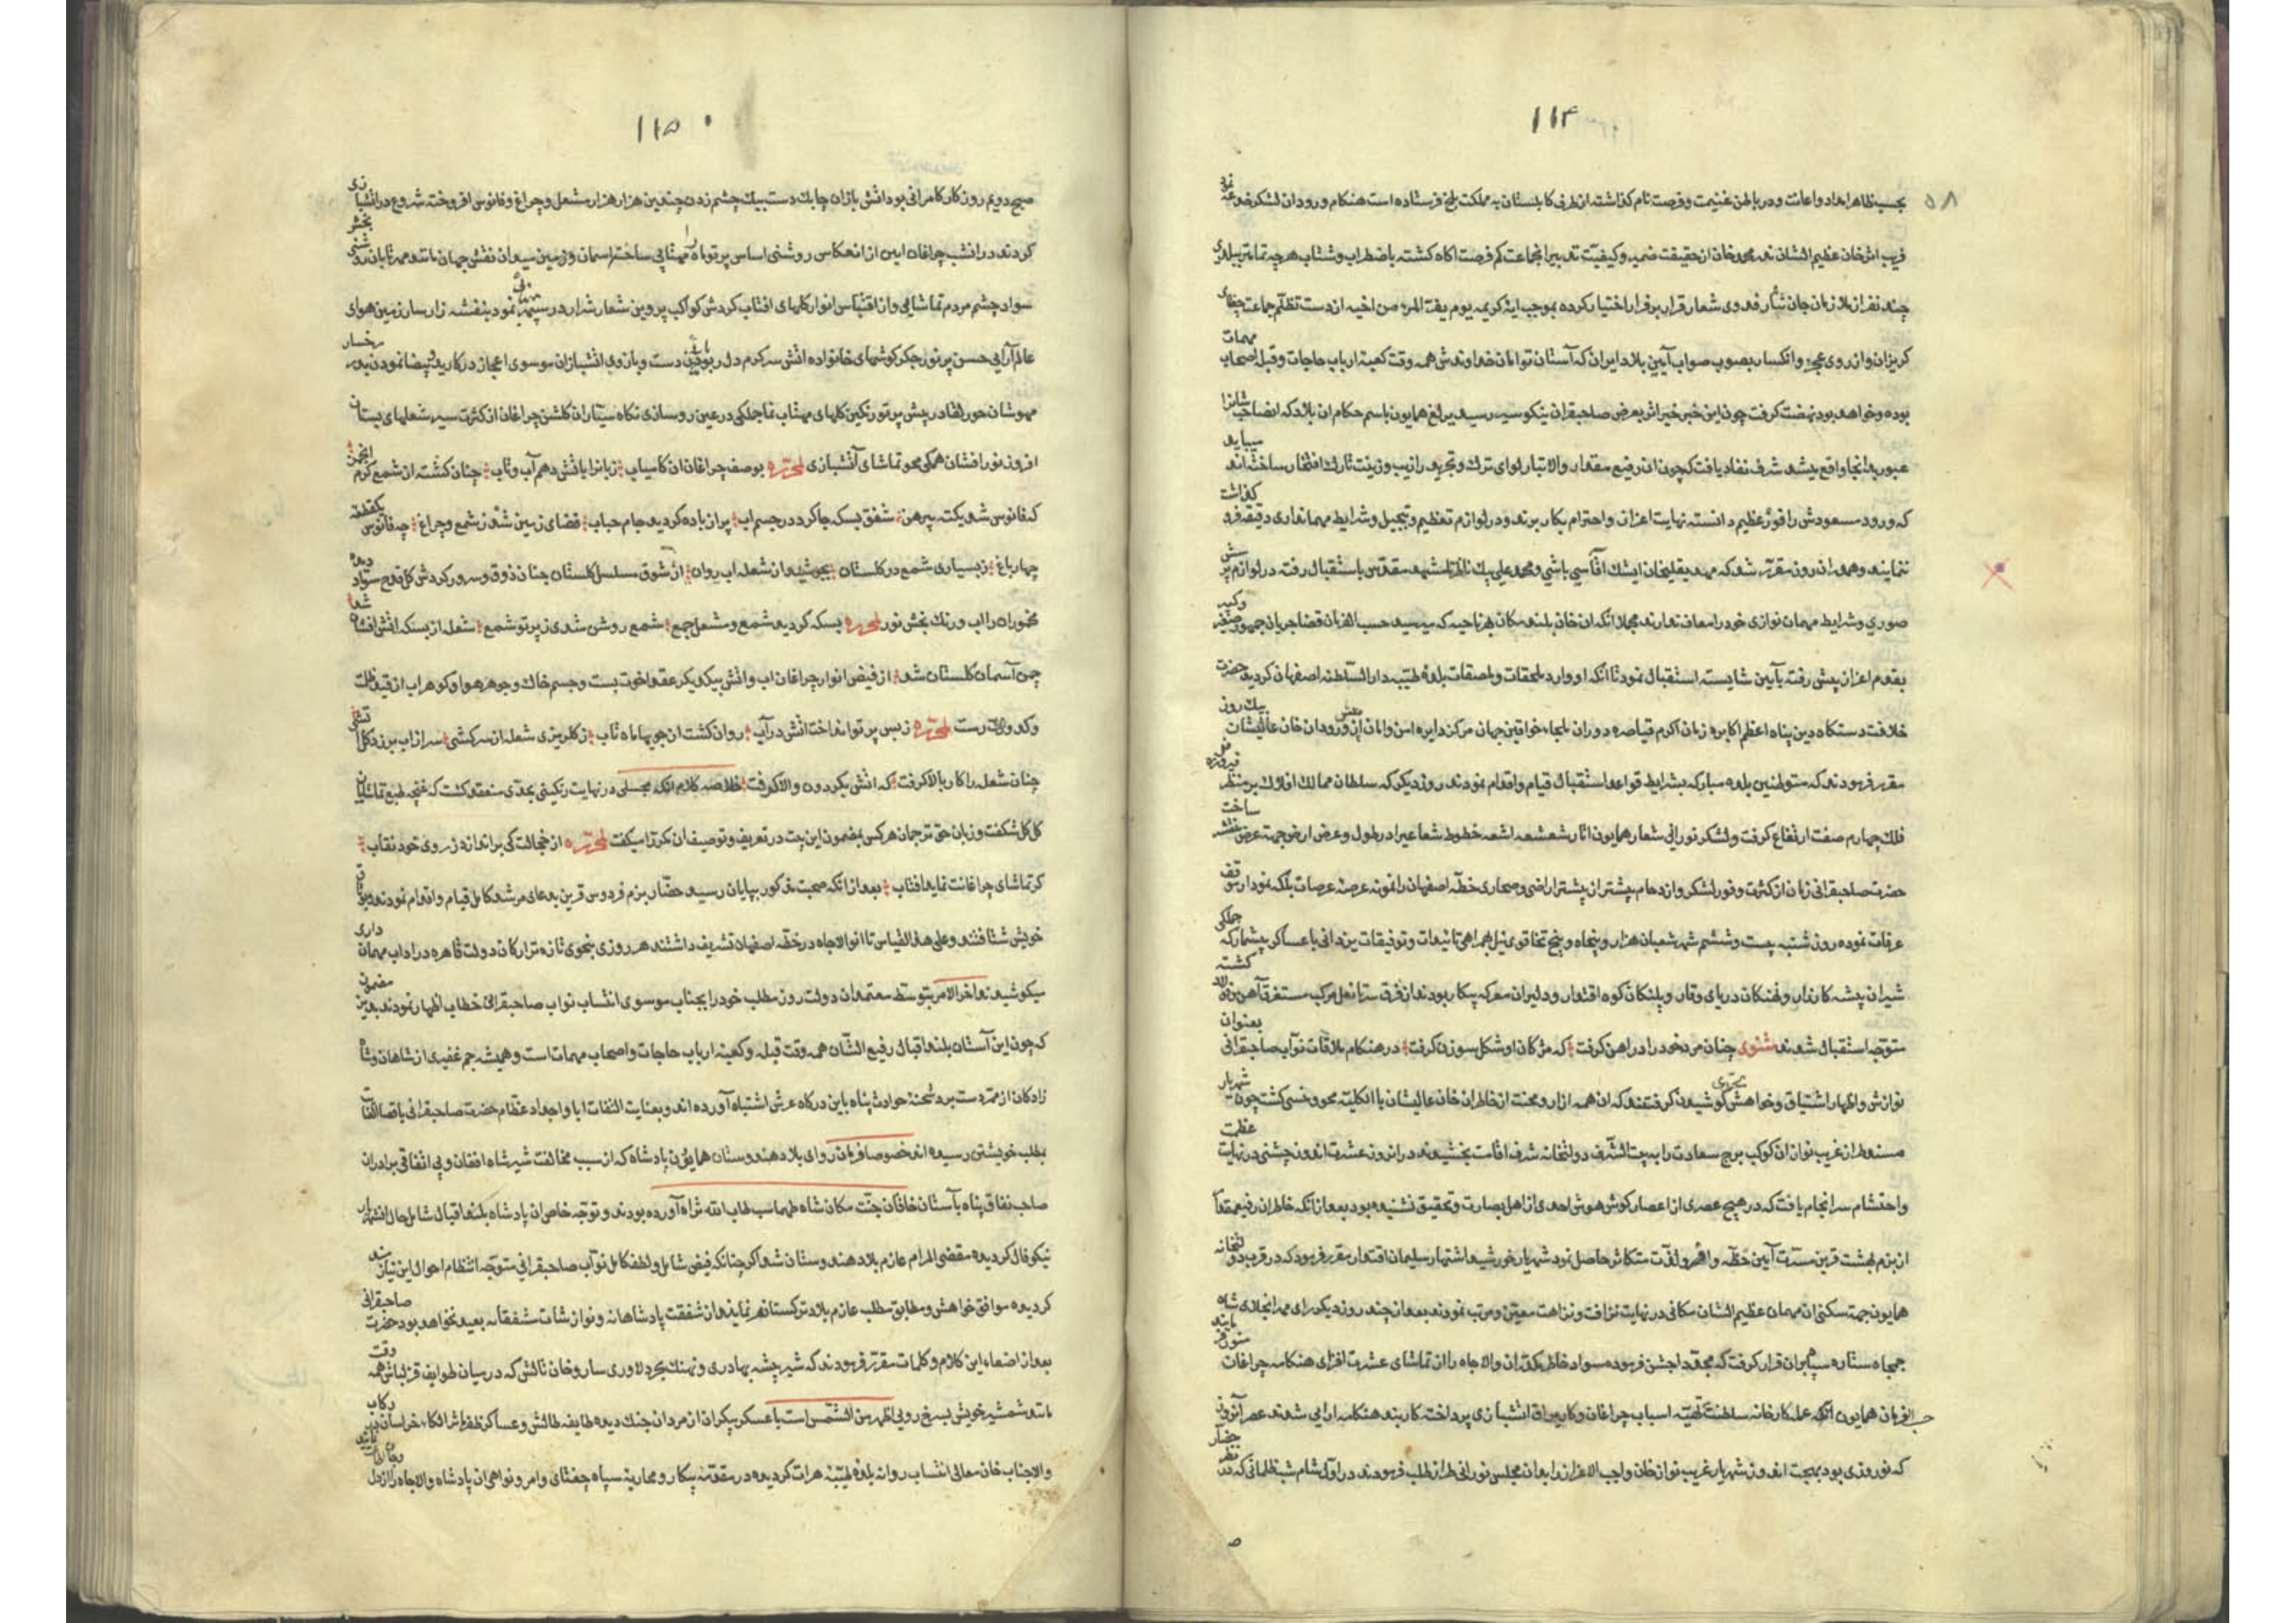 ۱۱۴
۵۸
بحسب ظاهر امداد و اعانت و در باطن غنیمت و فرصت تام کذاشته از طرف کابلستان به مملکت بلخ فرستاده است هنکام ورود ان لشکر
قریب اثر خان عظیم الشان ندر محمد خان از حقیقت ضمیر و کیفیت تدبیر انجماعت کم فرصت اکاه کشته باضطراب و شتاب هرچه تمامتر
چند نفر از ملازمان جان نثار فدوی شعار قرار بر فرار اختیار کرده بموجب ایه کریمه یوم یفر المرء من اخیه از دست تظلم جماعت جغتای
کریزان و از روی عجز و انکسار بصوب صواب آیین بلاد ایران که آستان توامان خداوندش همه وقت کعبه ارباب حاجات و قبله اصحاب مهمات
بوده و خواهد بود نهضت کرفت چون این خبر خیر اثر بعرض صاحبقران نیکو سیر رسید یرلیغ همایون باسم حکام ان بلاد که انصاحب شانرا
عبور بدانجا واقع میشد شرف نفاد یافت که چون ان رفیع مقدار والاتبار لوای ترک و تجرید را زیب و زینت تارک افتخار ساخته اند میباید
که ورود مسعودش را فوز عظیم دانسته نهایت اعزاز و احترام بکار برند و در لوازم تعظیم و تبجیل و شرایط مهمانداری دقیقه فرو کذاشت
ننمایند و همدران روز مقرر شد که مهدیقلیخان ایشک اقاسی باشی و محمد علی بیک ناظر تا مشهد مقدس باستقبال رفته در لوازم پرسش
صوری و شرایط مهمان نوازی خود را معاف ندارند مجملا انکه ان خان بلند مکان بهر ناحیه که میرسید حسب الفرمان قضا جریان جمهور صغیر و کبیر
بقدم اعزاز پیش رفته بآیین شایسته استقبال نمود تا انکه او وارد ملحقات و ملصقات بلده طیبه دار السلطنه اصفهان کردید حضرت
خلافت دستکاه دین پناه اعظم اکابره زمان اکرم قیاصره دوران ملجاء خواقین جهان مرکز دایره امن و امان پیش از ورود ان خان عالیشان بیک روز
مقرر فرمودند که متوطنین بلده مبارکه بشرایط قواعد استقبال قیام و اقدام نمودند روز دیکر که سلطان ممالک افلاک بر منظر فیروزه
فلک چهارم صفت ارتفاع کرفت و لشکر نورانی شعار همایون اثار شعشعه اشعه خطوط شعاعی را در طول و عرض ارض جهة عرض ساخت
حضرت صاحبقرانی زمان از کثرت و فور لشکر و ازدحام بیشتر از پیشتر اراضی و صحاری خطه اصفهان را نمونه عرصه عرصات بلکه نمودار موقف
عرفات نموده روز شنبه بیست و ششم شهر شعبان هزار و پنجاه و پنج تخاقوی ئیل بهمراهی تائیدات و توفیقات یزدانی با عساکر بیشمار که جملکی
شیران بیشه کارزار و نهنکان دریای وقار و پلنکان کوه اقتدار و دلیران معرکه پیکار بودند از فرق سر تا نعل مرکب مستغرق آهن و فولاد کشته
متوجه استقبال شدند مثنوی چنان مرد خود را در اهن کرفت که مژکان او شکل سوزن کرفت در هنکام ملاقات نواب صاحبقرانی بعنوان
نوازش و اظهار اشتیاق و خواهش کوشیدن کرفتند که ان همه ازار و محنت از خاطر ان خان عالیشان بالکلیه محو و منسی کشت چون شهریار
مسند طراز غریب نواز ان کوکب برج سعادت را به بیت الشرف دولتخانه شرف اقامت بخشیدند در انروز عشرت اندوز جشنی در نهایت عظمت
و احتشام سر انجام یافت که در هیچ عصری از اعصار کوش هوش احدی از اهل بصارت و تحقیق نشنیده بود بعد از انکه خاطر ان رفیع مقدار
از بزم بهشت قرین مسرت آیین حظه وافر و لذت متکاثر حاصل نمود شهریار خورشید اشتهار سلیمان اقتدار مقرر فرمود که در قرب دولتخانه
همایون جهة سکنی ان مهمان عظیم الشان مکانی در نهایت نزافت و نزاهت معین و مرتب نمودند بعد از چند روز دیکر رای مهر انجلای شاه
جمجاه ستاره سپاه بران قرار کرفت که مجددا جشن فرموده سواد خاطر مکدر ان والاجاه را از تماشای عشرت افزای هنکامه چراغان
حسب الفرمان همایون انکه عمله کارخانه سلطنت بتهیه اسباب چراغان و کار یراق اتشبازی پرداخته کاربند هنکامه ارایی شدند عصر آنروز
که نوروزی بود بهجت اندوز شهریار غریب نواز خان واجب الاعزاز را بدان مجلس نورانی طراز طلب فرمودند در اول شام شب ظلمانی که در نظر حضار
۱۱۵
صبح دویم روزکار کامرانی بود اتش بازان چابک دست بیک چشم زدن چندین هزار هزار مشعل و چراغ و فانوس افروخته شروع در اتشبازی
کردند در انشب چراغان ایین از انعکاس روشنی اساس پرتو ماه را مهتابی ساخته اسمان و زمین میدان نقش جهان مانند مهر تابان روشنی بخش
سواد چشم مردم تماشایی و از اقتباس انوار کلهای افتاب کردش کواکب پروین شعار شراره در سپهر نمود بنفشه زار سار زمین هوای
عالم آرایی حسن پر نور جکر کوشهای خانواده اتش سرکرم دل ربودن دست و بازوی اتشبازان موسوی اعجاز در کار ید بیضا نمودن بود رخسار
مهوشان حور لقا در پیش پرتو رنکین کلهای مهتاب نما جملکی در عین رو سازی نکاه سیاران کلشن چراغان از کثرت سیر شعلهای بستان
افروز نور افشان همکی محو تماشای آتشبازی لمحرره بوصف چراغان ان کامیاب زبانرا باتش دهم آب و تاب چنان کشته از شمع کرم انجمن
که فانوس شد یکته پیرهن شفق بسکه جا کرد در جسم اب پر از باده کردید جام حباب فضای زمین شد ز شمع و چراغ چه فانوس یکقطعه
چهار باغ ز بسیاری شمع در کلستان بجوشید از شعله اب روان از شوق مسلسل کلستان چنان ذوق و سرور کردش کل قدح سواد دیده
مخموران را اب و رنک بخش نور لمحرره بسکه کردید شمع و مشعل جمع شمع روشن شدی ز پرتو شمع شعله از بسکه اتش افشان شد
چمن آسمان کلستان شد از فیض انوار چراغان اب و اتش بیکدیکر عقد اخوت بست و جسم خاک و جوهر هوا و کوهر اب از قید
و کدورت رست لمحرره ز بس پرتو انداخت اتش در آب روان کشت از جویها ماه تاب ز کلریزی شعله از سرکشی سر از اب بر زد کل اتشی
چنان شعله را کار بالا کرفت که اتش بکردون والا کرفت خلاصه کلام انکه مجلسی در نهایت رنکینی بحدی منعقد کشت که غنچه طبع تماشاییان
کل کل شکفت و زبان حق ترجمان هر کس بمضمون این بیت در تعریف و توصیف ان مکرر میکفت لمحرره از خجالت کی براندازد ز روی خود نقاب
کر تماشای چراغانت نماید افتاب بعد از انکه صحبت مذکور بپایان رسید حضار بزم فردوس قرین بدعای مرشد کامل قیام و اقدام نمودند و بوثاق
خویش شتافتند و علی هذا القیاس تا انوالاجاه در خطه اصفهان تشریف داشتند هر روزی بنحوی تازه تر ارکان دولت قاهره در اداب مهمان داری
میکوشیدند اخر الامر بتوسط معتمدان دولت روز مطلب خود را بجناب موسوی انتساب نواب صاحبقرانی خطاب اظهار نمودند بدین مضمون
که چون این آستان بلند اقبال رفیع الشان همه وقت قبله و کعبه ارباب حاجات و اصحاب مهمات است و همیشه جم غفیری از شاهان و شاه
زادکان از ممر دست برد شحنه حوادث پناه باین درکاه عرش اشتباه آورده اند و بعنایت التفات ابا و اجداد عظام حضرت صاحبقرانی باقصا الغایات
بمطلب خویشتن رسیده اند خصوصا فرمان روای بلاد هندوستان همایون پادشاه که از سبب مخالفت شیر شاه افغان و بی اتفاقی برادران
صاحب نفاق پناه بآستان خاقان جنت مکان شاه طهماسب طاب الله ثراه آورده بودند و توجه خاص ان پادشاه بلند اقبال شامل حال
نیکو فال کردیده مقضی المرام عازم بلاد هندوستان شد اکر چنانکه فیض شامل و لطف کامل نواب صاحبقرانی متوجه انتظام احوال این نیازمند
کردیده موافق خواهش و مطابق مطلب عازم بلاد ترکستانم نمایند از شفقت پادشاهانه و نوازشات مشفقانه بعید نخواهد بود حضرت صاحبقرانی
بعد از اصغاء این کلام و کلمات مقرر فرمودند که شیر بیشه بهادری و نهنک بحر دلاوری ساروخان تالش که در میان طوایف قزلباش همه وقت
مانند شمشیر خویش بسرخ رویی اظهر من الشمس است با عسکر بیکران از مردان جنک دیده طایفه طالش و عساکر ظفر اثر الکاء خراسان در رکاب
والاجناب خان معالی انتساب روانه بلده طیبه هرات کردیده در مقدمه پیکار و محاربه سپاه جغتای و امر و نواهی ان پادشاه والاجاه را از دل